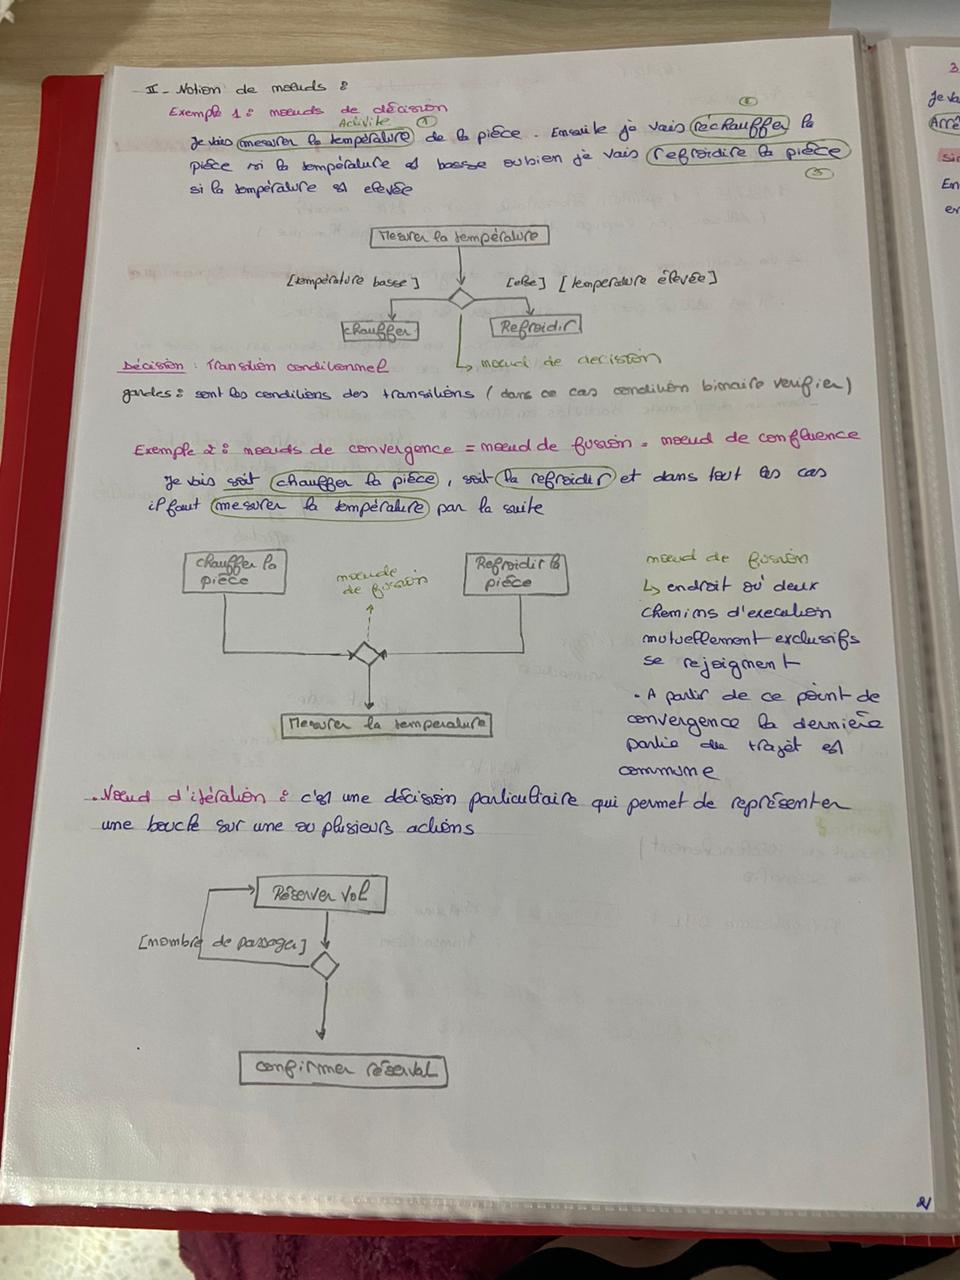 II - Notion de nœuds :
Exemple 1 : nœuds de décision
Activité 1 2
Je vais mesurer la température de la pièce. Ensuite je vais réchauffer la
pièce si la température est basse ou bien je vais refroidire la pièce
3
si la température est elevée
Mesurer la température
[température basse] [else] [temperature élevée]
chauffer Refroidir
nœud de decision
Décision : Transition conditionnel
gardes : sont les conditions des transitions (dans ce cas condition binaire verifier)
Exemple 2 : nœuds de convergence = nœud de fusion = nœud de confluence
Je vais soit chauffer la pièce, soit la refroidir et dans tout les cas
il faut mesurer la température par la suite
chauffer la
pièce
nœude
de fusion
Refroidir la
pièce
Mesurer la temperature
nœud de fusion
↳ endroit où deux
chemins d'execution
mutuellement exclusifs
se rejoignent
. A partir de ce point de
convergence la dernière
partie du trajet est
commune
. Nœud d'itération : c'est une décision particuliaire qui permet de représenter
une boucle sur une ou plusieurs actions
Réserver vol
[nombre de passager]
confirmer réservat
2/
3
Je va
Arrê
sic
En
er